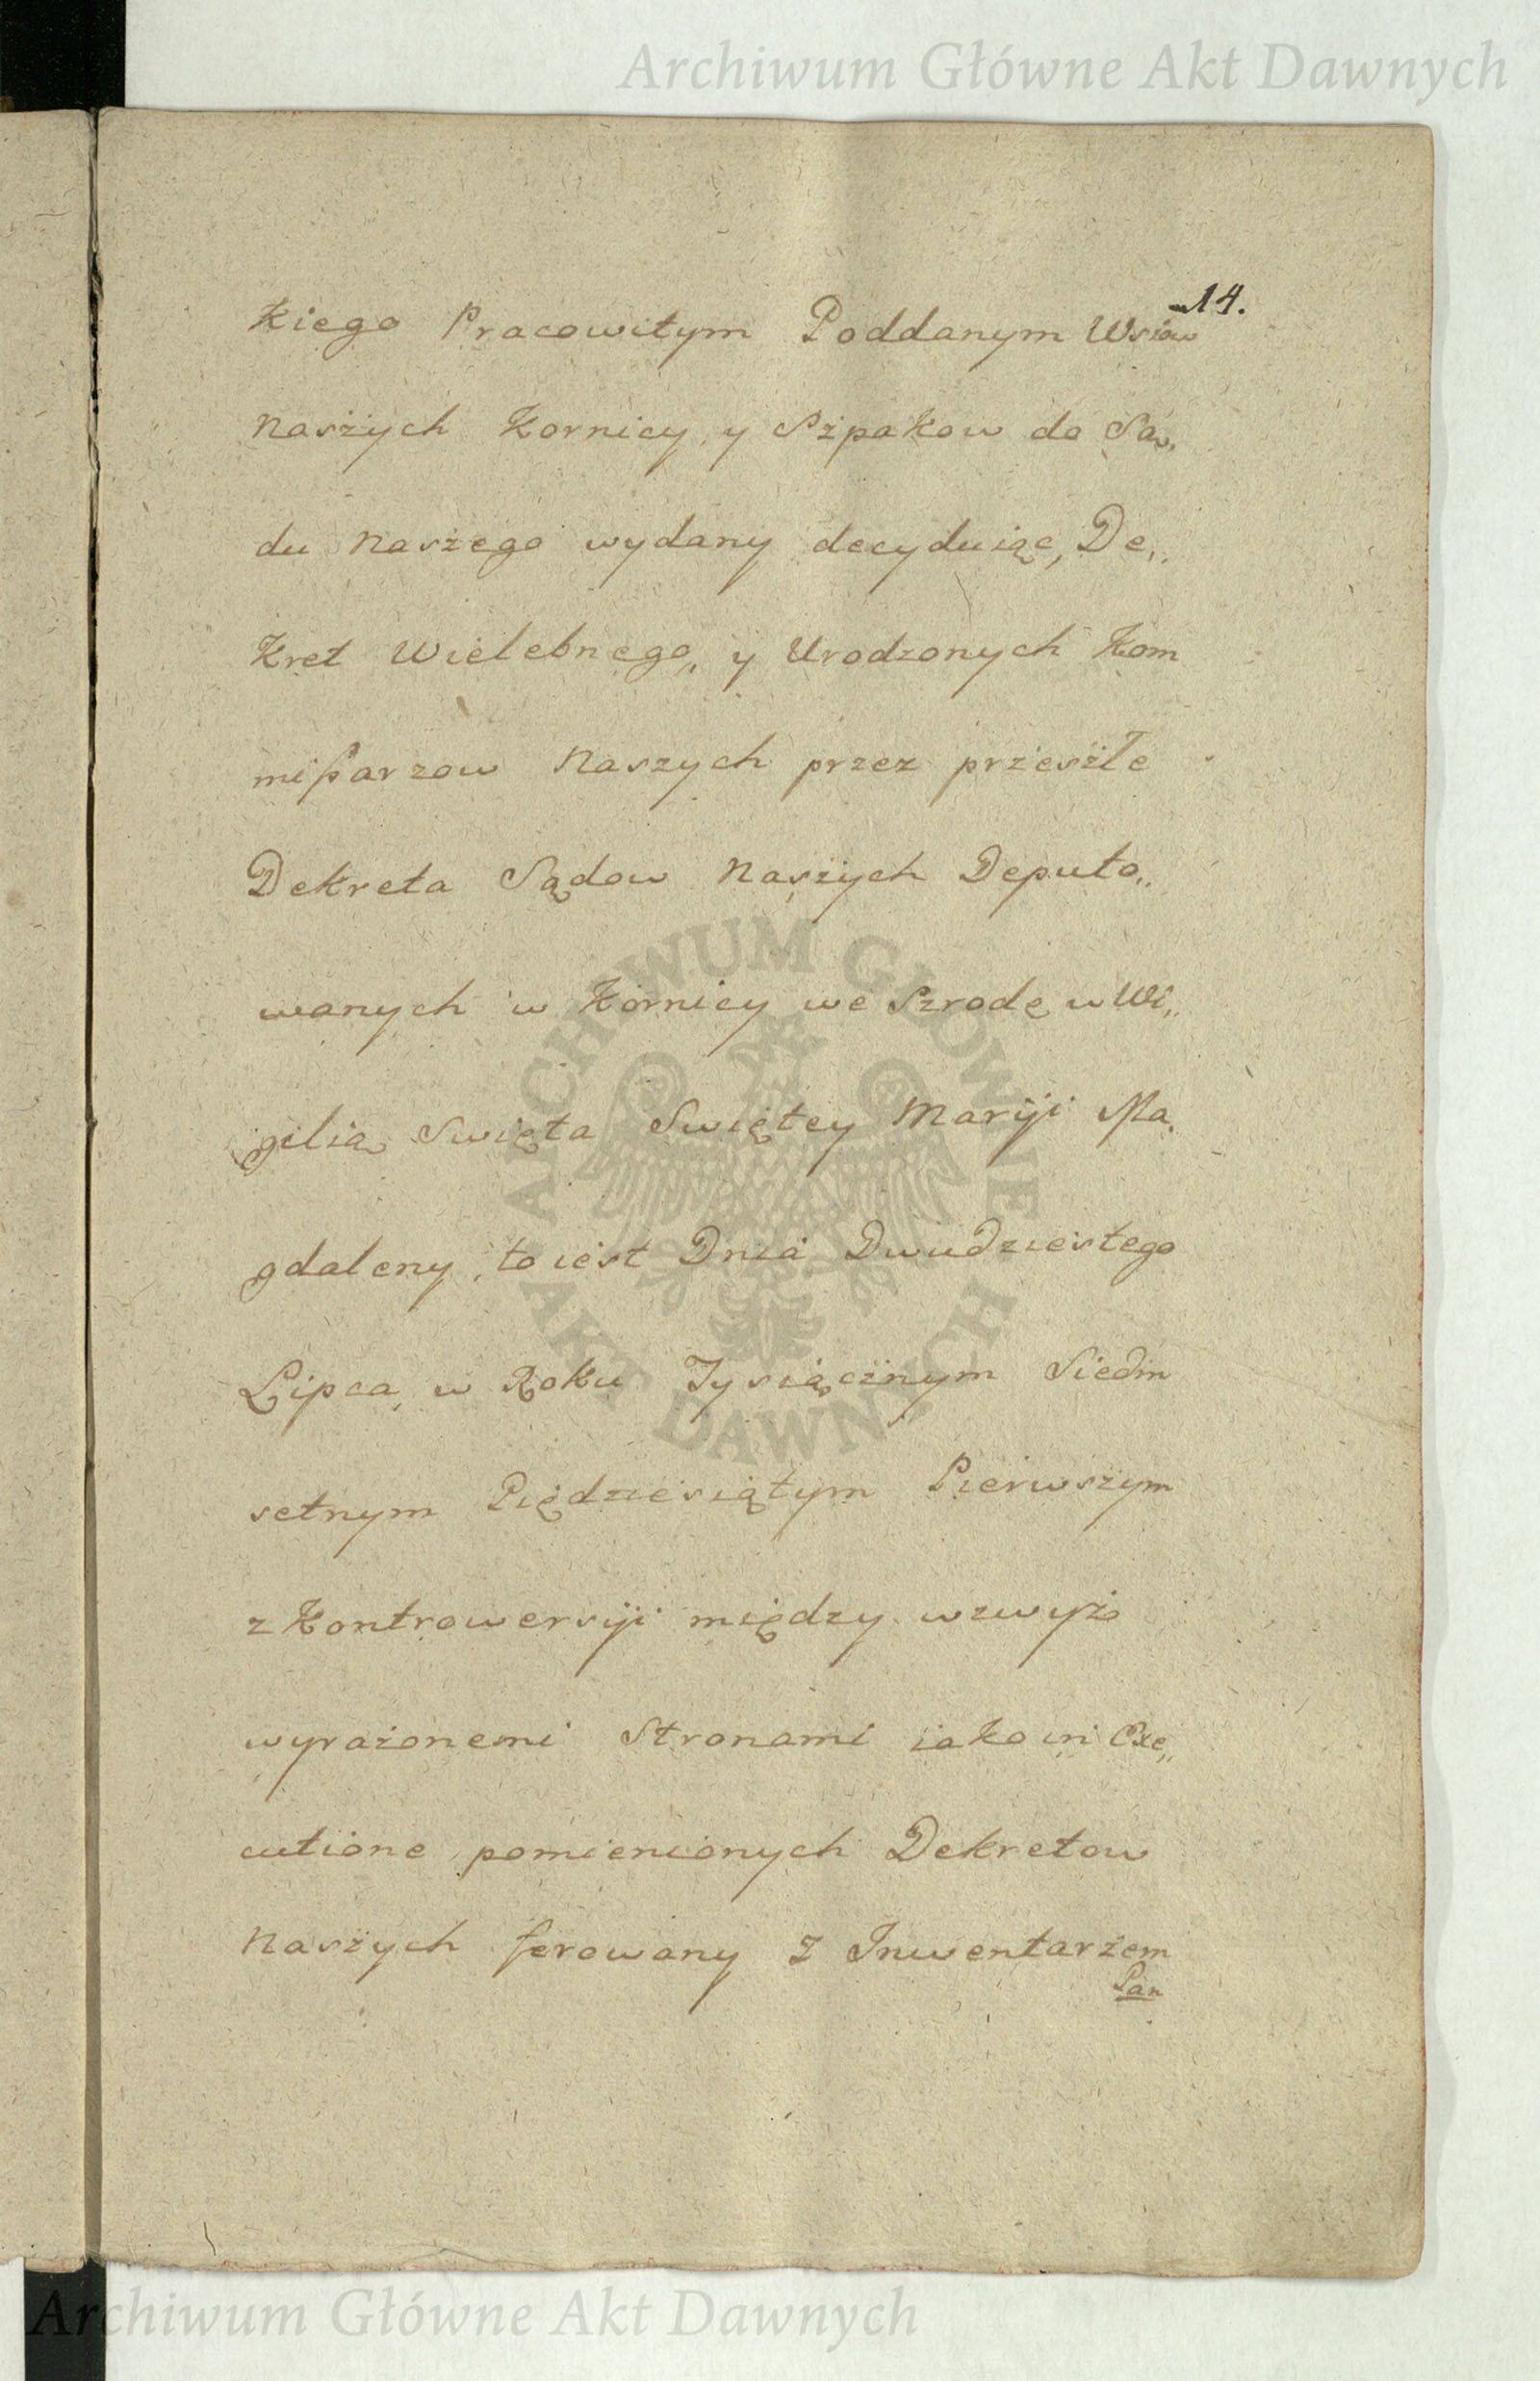 Archiwum Główne Akt Dawnych
14.
Kiego Pracowitym Poddanym Wsiow
Naszych Kornicy y Szpakow do Są„
du Naszego wydany decyduiąc, De„
kret Wielebnego, y Urodzonych Kom
mißarzow Naszych przez przeszłe
Dekreta Sądow Naszych Deputo„
wanych w Kornicy we Szrodę w Wi„
gilią Swięta Swiętey Maryi Ma„
gdaleny, to iest Dnia Dwudziestego
Lipca, w Roku Tysiącznym Siedm
setnym Piędziesiątym Pierwszym
z Kontrowersyi między wzwyż
wyrażonemi Stronami iako in Exe„
cutione pomienionych Dekretow
Naszych ferowany z Inwentarzem
Pan
ARCHIWUM GŁÓWNE
AKT DAWNYCH
Archiwum Główne Akt Dawnych